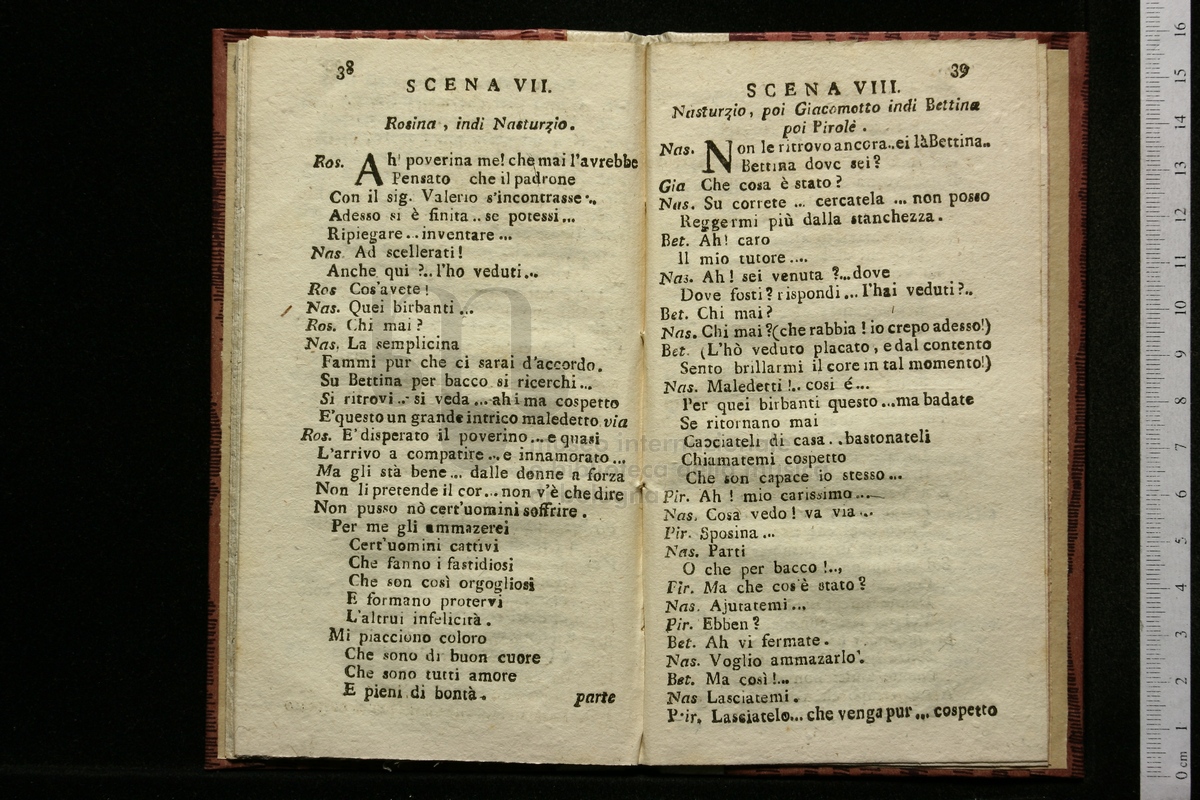 38
SCENA VII.
Rosina, indi Nasturzio.
Ros. Ah! poverina me! che mai l'avrebbe
Pensato che il padrone
Con il sig. Valerio s'incontrasse...
Adesso si è finita.. se potessi...
Ripiegare.. inventare...
Nas. Ad scellerati!
Anche qui?.. l'ho veduti...
Ros Cos'avete!
Nas. Quei birbanti...
Ros. Chi mai?
Nas. La semplicina
Fammi pur che ci sarai d'accordo.
Su Bettina per bacco si ricerchi...
Si ritrovi... si veda... ahi ma cospetto
E'questo un grande intrico maledetto via
Ros. E'disperato il poverino... e quasi
L'arrivo a compatire... e innamorato...
Ma gli stà bene... dalle donne a forza
Non li pretende il cor... non v'è che dire
Non pusso nò cert'uomini soffrire.
Per me gli ammazerei
Cert'uomini cattivi
Che fanno i fastidiosi
Che son così orgogliosi
E formano protervi
L'altrui infelicità.
Mi piacciono coloro
Che sono di buon cuore
Che sono tutti amore
E pieni di bontà.
parte
39
SCENA VIII.
Nasturzio, poi Giacomotto indi Bettina
poi Pirolè.
Nas. Non le ritrovo ancora.. ei là Bettina..
Bettina dove sei?
Gia Che cosa è stato?
Nas. Su correte ... cercatela ... non posso
Reggermi più dalla stanchezza.
Bet. Ah! caro
Il mio tutore....
Nas. Ah! sei venuta?...dove
Dove fosti? rispondi... l'hai veduti?..
Bet. Chi mai?
Nas. Chi mai?(che rabbia! io crepo adesso!)
Bet. (L'hò veduto placato, e dal contento
Sento brillarmi il core in tal momento!)
Nas. Maledetti!.. cosi é...
Per quei birbanti questo...ma badate
Se ritornano mai
Cacciateli di casa.. bastonateli
Chiamatemi cospetto
Che son capace io stesso...
Pir. Ah! mio carissimo...
Nas. Cosa vedo! va via...
Pir. Sposina...
Nas. Parti
O che per bacco!..,
Pir. Ma che cos'è stato?
Nas. Ajutatemi...
Pir. Ebben?
Bet. Ah vi fermate.
Nas. Voglio ammazarlo.
Bet. Ma così!...
Nas Lasciatemi.
Pir. Lasciatelo... che venga pur... cospetto
0 cm 1 2 3 4 5 6 7 8 9 10 11 12 13 14 15 16